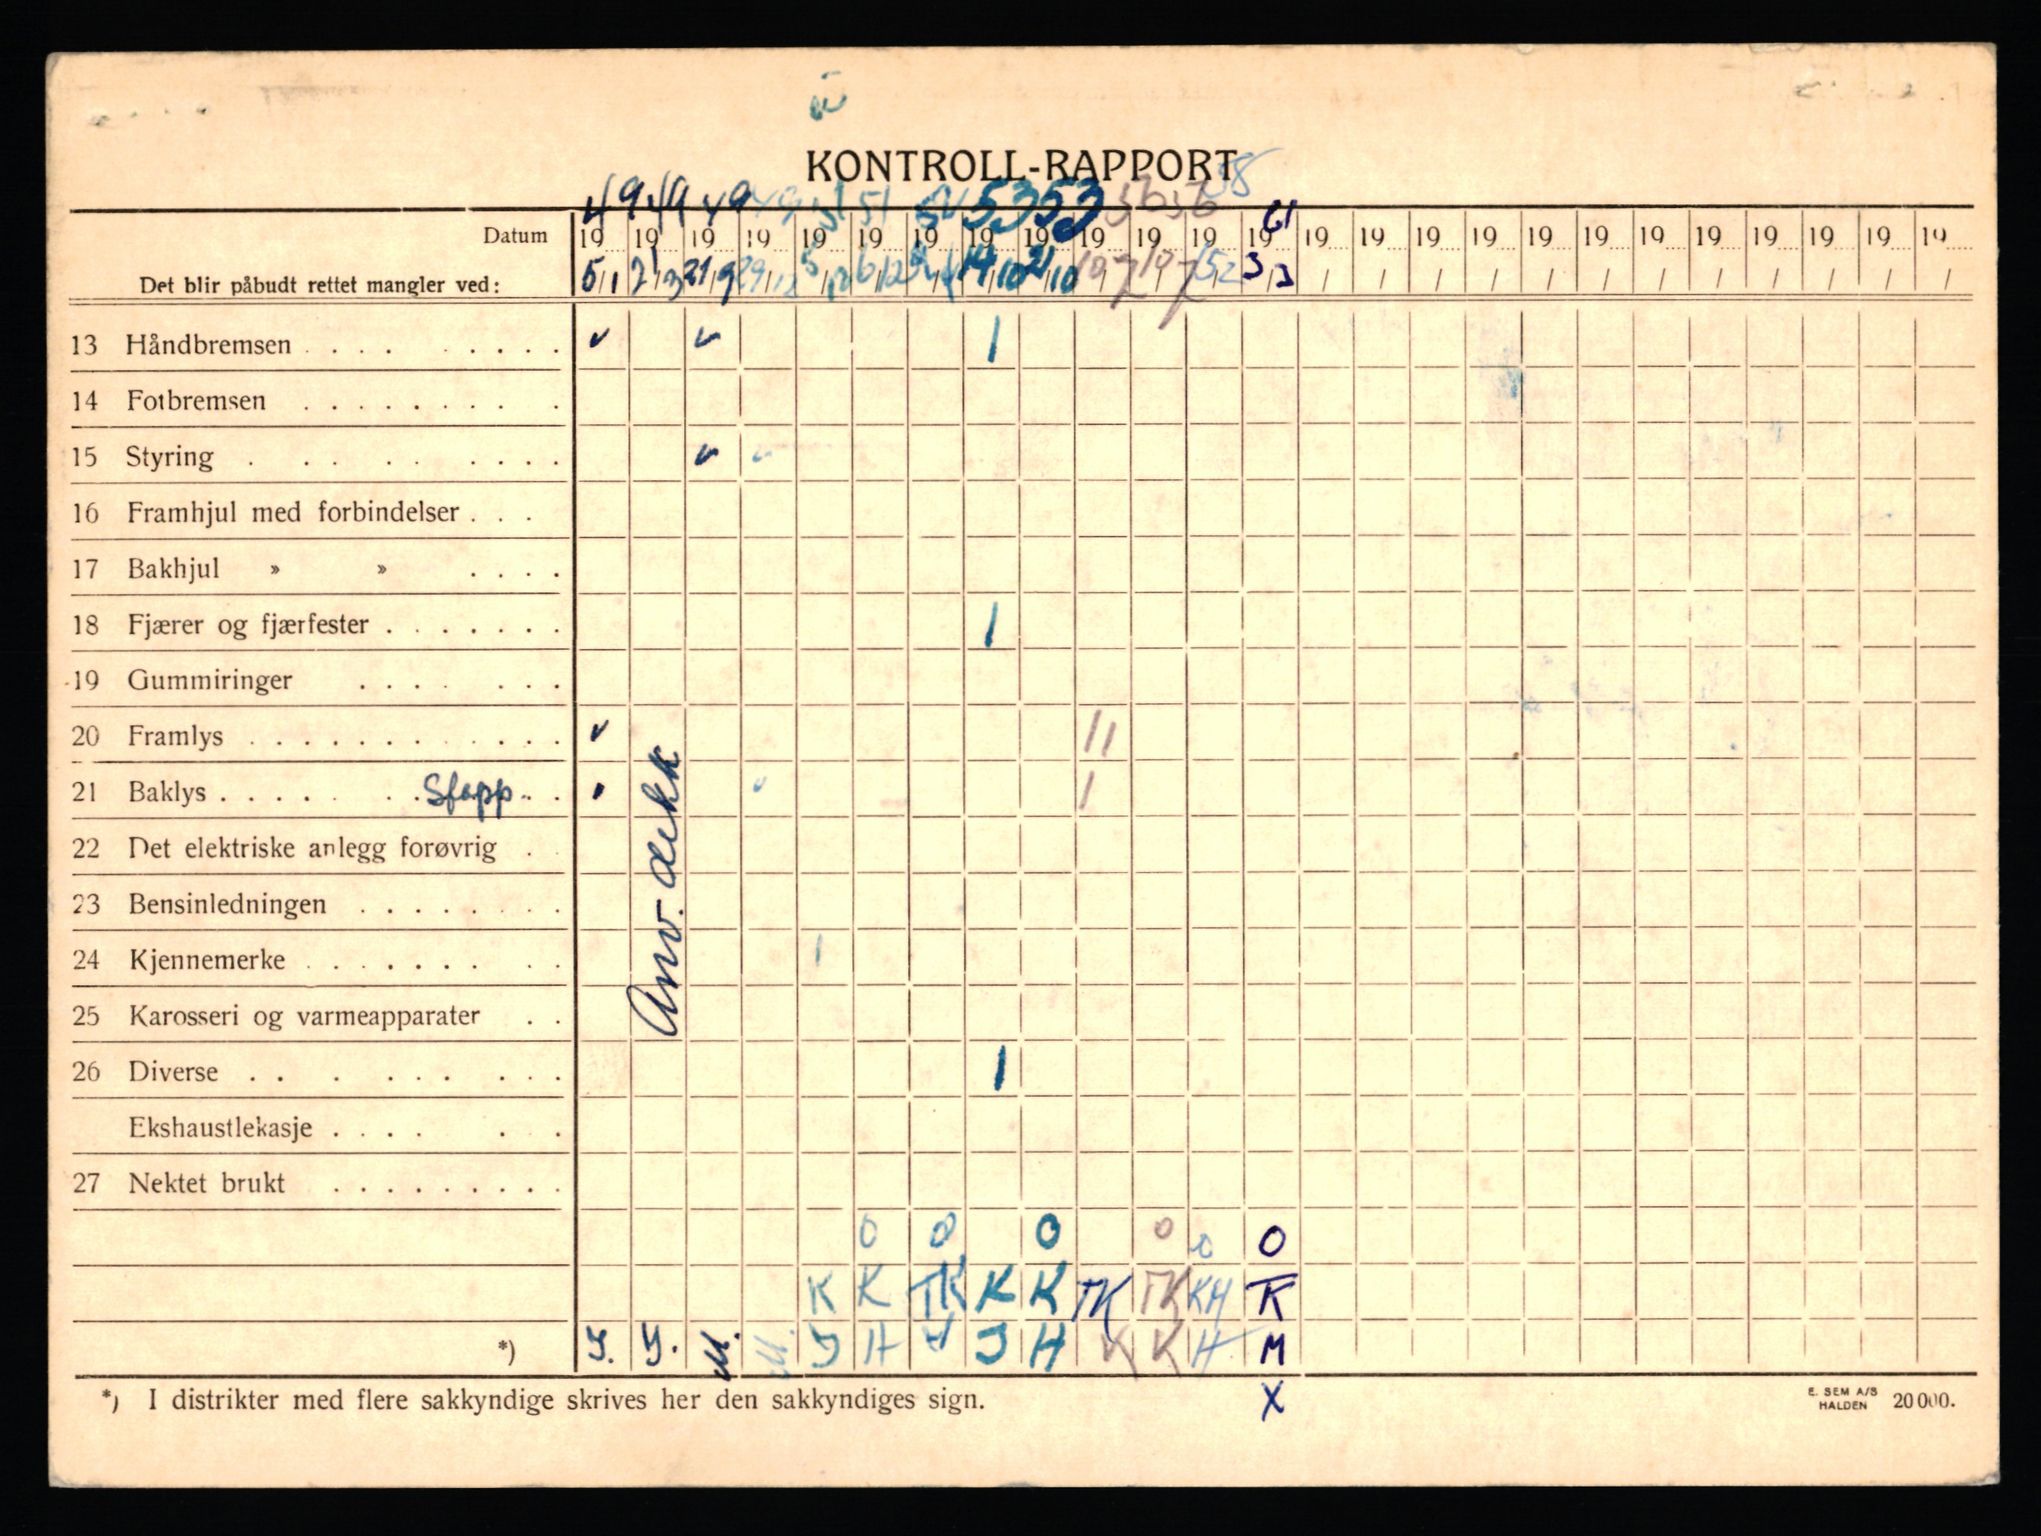 KONTROLL-RAPPORT
49 49 49 49 51 51 52 53 53 56 56 58 61
Datum 19 19 19 19 19 19 19 19 19 19 19 19 19 19 19 19 19 19 19 19 19 19 19 19 19
Det blir påbudt rettet mangler ved: 5/1 2/3 21/9 29/12 5/12 6/12 14/10 21/10 10/7 10/7 3/3 / / / / / / / / / / / /
13 Håndbremsen
14 Fotbremsen
15 Styring
16 Framhjul med forbindelser
17 Bakhjul » »
18 Fjærer og fjærfester
19 Gummiringer
20 Framlys
21 Baklys Stopp
22 Det elektriske anlegg forøvrig
23 Bensinledningen
24 Kjennemerke
25 Karosseri og varmeapparater
26 Diverse
Ekshaustlekasje
27 Nektet brukt
Anv. dekk
0 0 0 0 0 0
K K TK K K TK TK KH K
*) H H K K H M
*) I distrikter med flere sakkyndige skrives her den sakkyndiges sign.
X
E. SEM A/S
HALDEN 20 000.